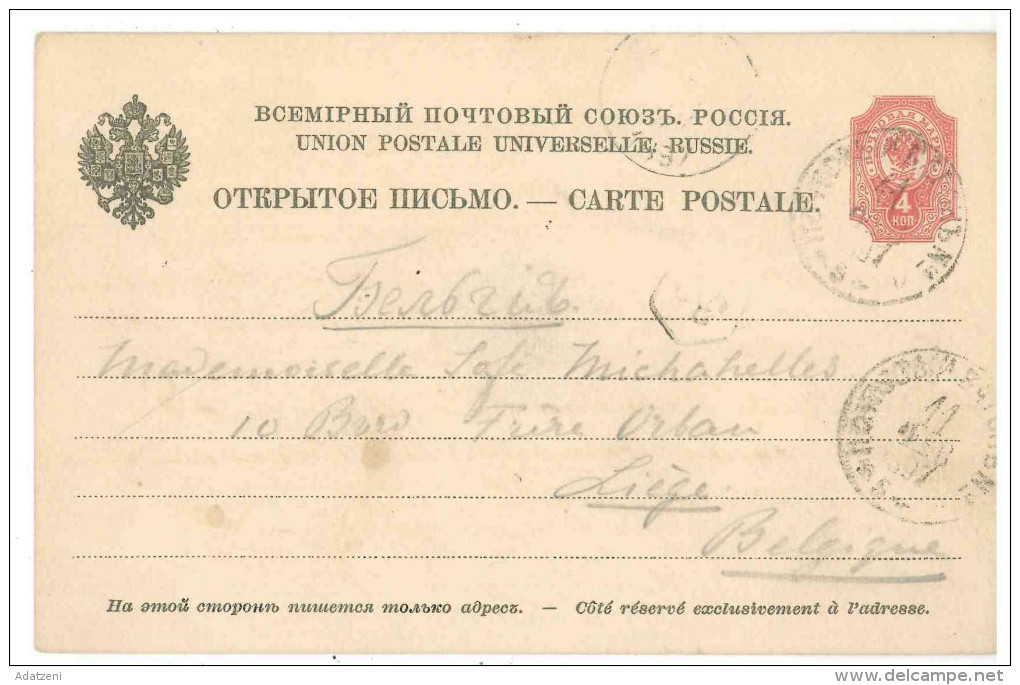 ВСЕМІРНЫЙ ПОЧТОВЫЙ СОЮЗЪ. РОССІЯ.
UNION POSTALE UNIVERSELLE. RUSSIE.
ОТКРЫТОЕ ПИСЬМО. — CARTE POSTALE.
ПОЧТОВАЯ МАРКА
4
КОП.
11
Бельгія.
Mademoiselle Michahelles
10 Frère Orban
11
Liège.
Belgique
На этой сторонѣ пишется только адресъ. — Côté réservé exclusivement à l'adresse.
Adatzeni
www.delcampe.net